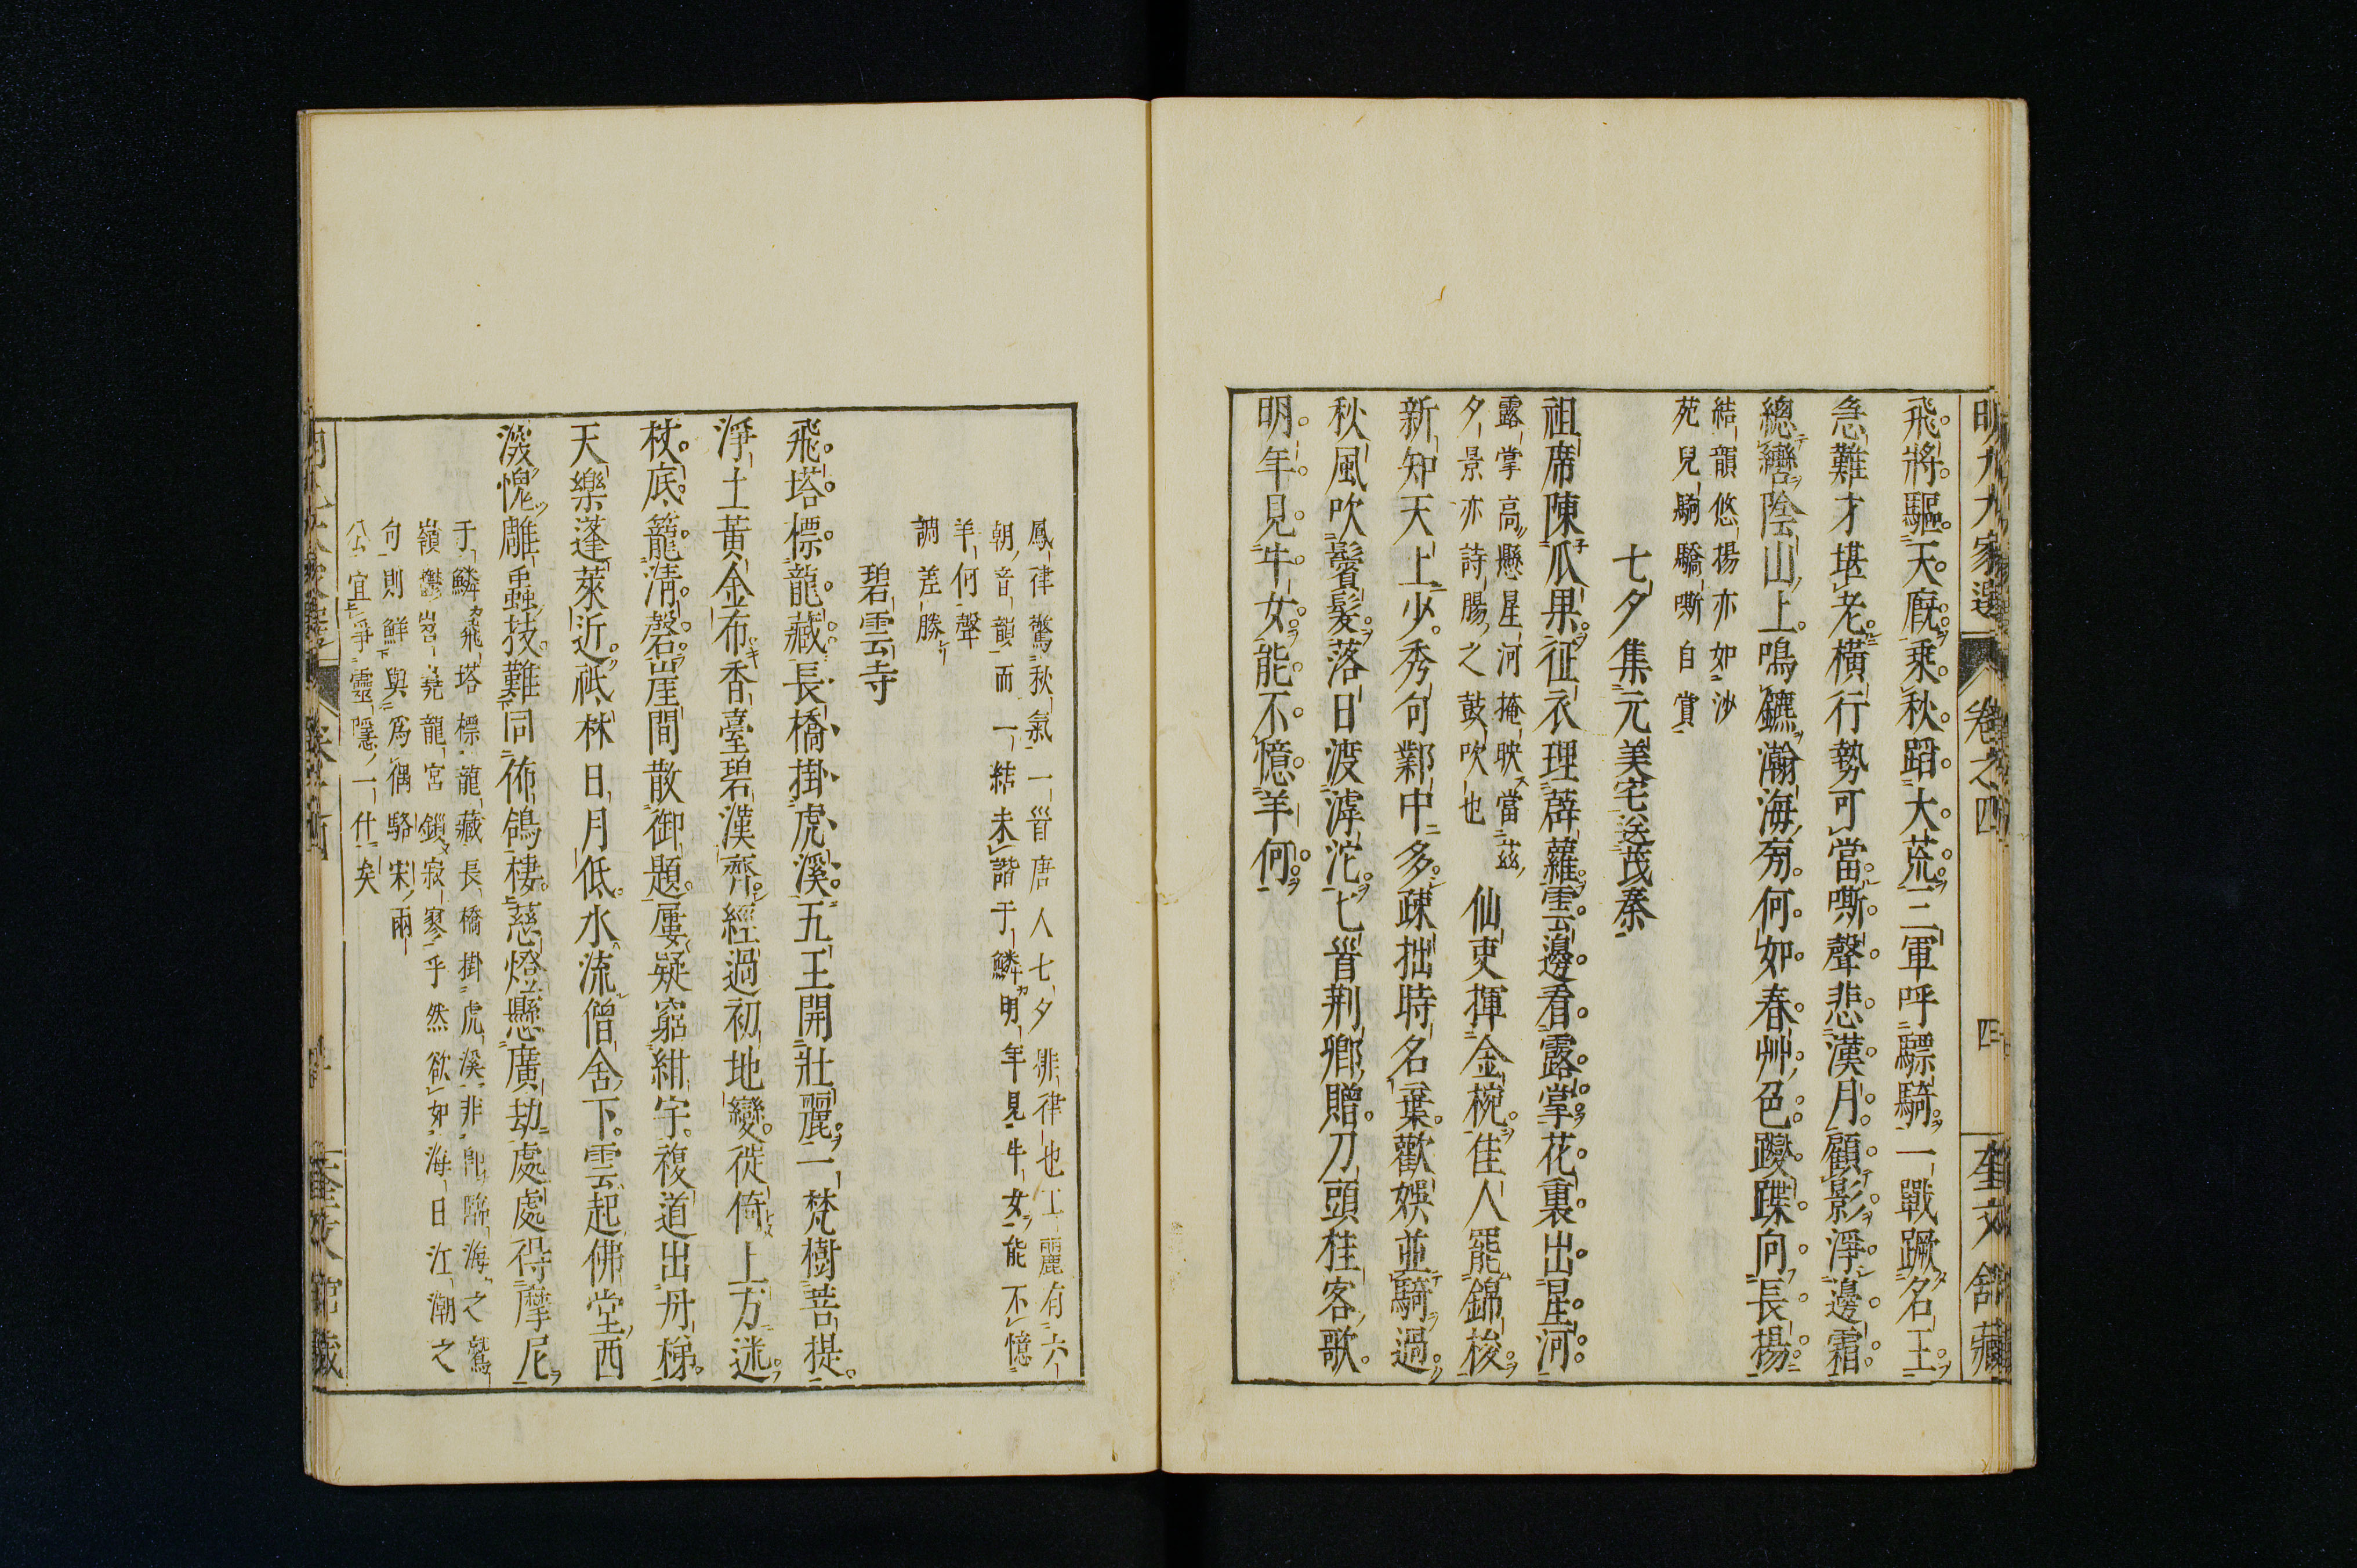 飛將驅天廐乘秋蹈大荒三軍呼驃騎一戰蹶名王
急難才堪老橫行勢可當嘶聲悲漢月顧影淨邊霜
總轡陰山上鳴鑣瀚海旁何如春艸色躞蹀向長楊
結韻悠揚亦如沙
苑兒駒驕嘶自賞
七夕集元美宅送茂秦
祖席陳瓜果征衣理薜蘿雲邊看露掌花裏出星河
露掌高懸星河掩映當茲
夕景亦詩腸之鼓吹也
仙吏揮金椀佳人罷錦梭
新知天上少秀句鄴中多疎拙時名棄歡娛並騎過
秋風吹鬢髮落日渡滹沱匕首荆卿贈刀頭桂客歌
明年見牛女能不憶羊何
鳳律驚秋氣一首唐人七夕徘律也工麗有六
朝音韻而一結未諧于鱗明年見牛女能不憶
羊何聲
調差勝
碧雲寺
飛塔標龍藏長橋掛虎溪五王開壯麗一梵樹菩提
淨土黃金布香臺碧漢齊經過初地變徙倚上方迷
杖底籠淸磬崖間散御題屢疑窮紺宇複道出丹梯
天樂蓬萊近祇林日月低水流僧舍下雲起佛堂西
漫愧雕蟲技難同佈鴿棲慈燈懸廣劫處處得摩尼
于鱗飛塔標龍藏長橋掛虎溪非卽臨海之鷲
嶺鬱岧嶤龍宮鎖寂寥乎然欲如海日江潮之
句則鮮與爲偶駱宋兩
公宜爭靈隱一什矣